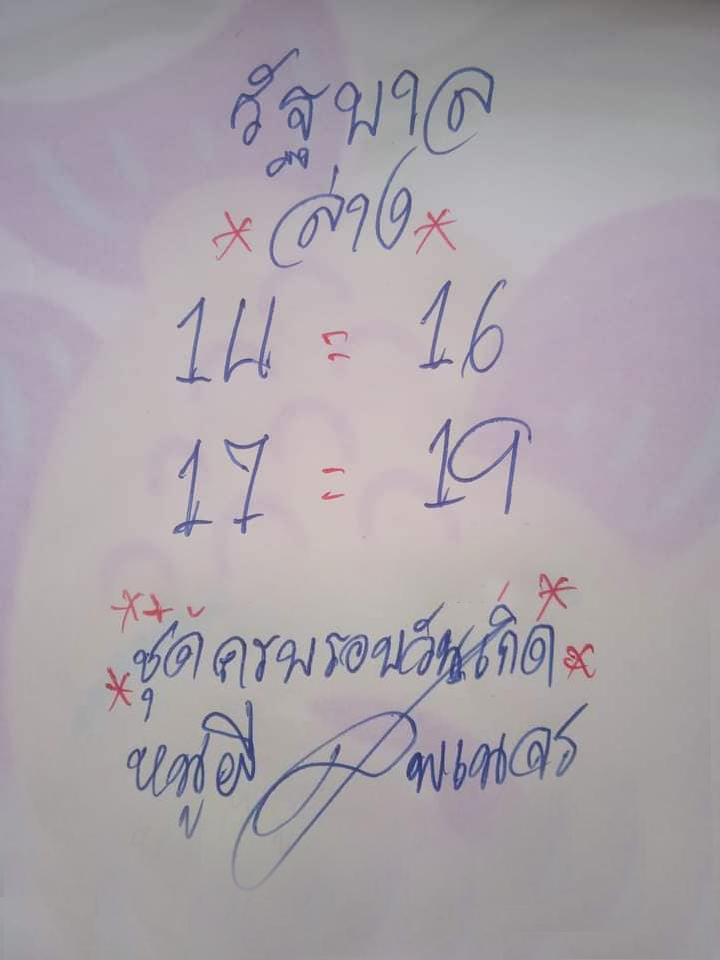 รัฐบาล
*ล่าง*
14 = 16
17 = 19
ชุดครบรอบวันเกิด
หมูมี พเนจร